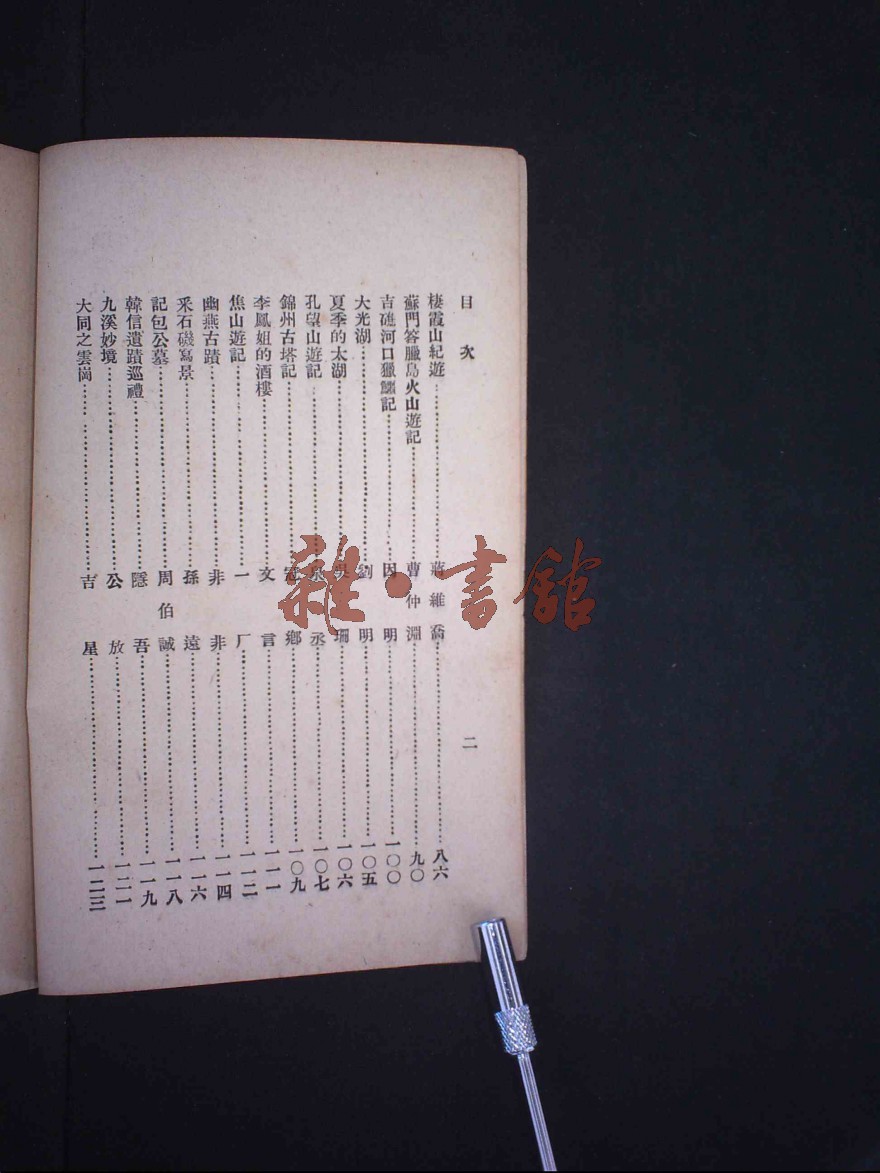 目次
二
棲霞山紀遊……蔣維喬……八六
蘇門答臘島火山遊記……曹仲淵……九〇
吉礁河口獵鱷記……因明……一〇〇
大光湖……劉明……一〇五
夏季的太湖……吳珊……一〇六
孔望山遊記……泉丞……一〇七
錦州古塔記……冠鄉……一〇九
李鳳姐的酒樓……文言……一一一
焦山遊記……一厂……一一二
幽燕古蹟……非非……一一四
采石磯寫景……孫遠……一一六
記包公墓……周伯誠……一一八
韓信遺蹟巡禮……隱吾……一一九
九溪妙境……公放……一二一
大同之雲崗……吉星……一二三
雜·書館